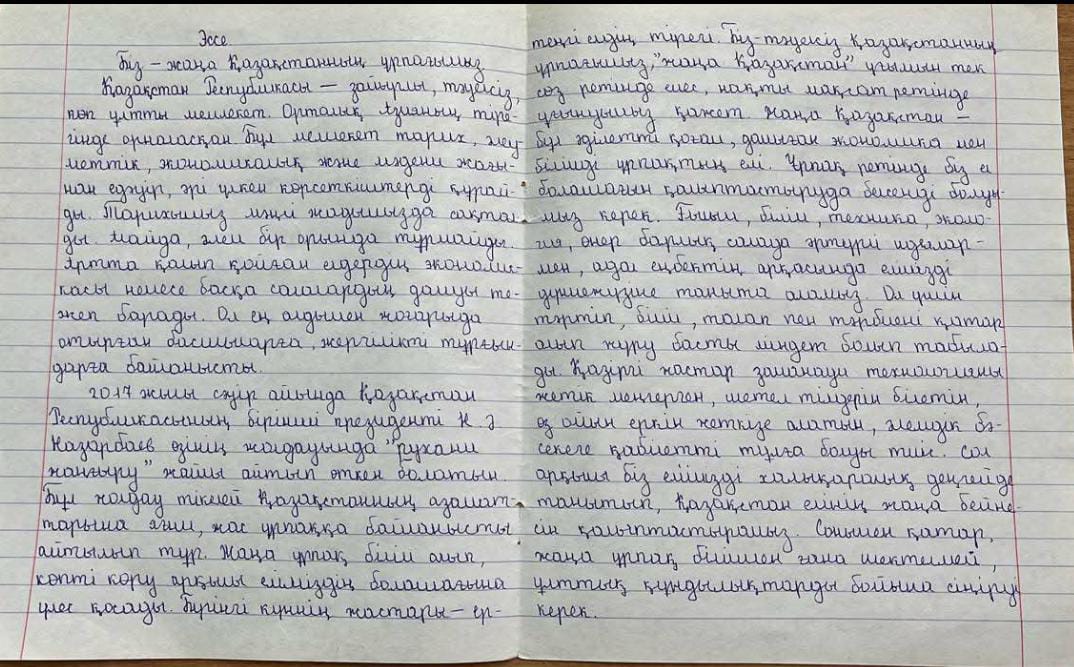 Эссе
Біз – жаңа Қазақстанның ұрпағымыз
Қазақстан Республикасы – зайырлы, тәуелсіз,
көп ұлтты мемлекет. Орталық Азияның тіре-
гінде орналасқан бұл мемлекет тарих, әлеу-
меттік, экономикалық және мәдени жағы-
нан едәуір, әрі үлкен көрсеткіштерді құрай-
ды. Тарихымыз мәңгі жадымызда сақтал
ды. Майда, әлем бір орында тұрмайды.
Артта қалып қойған елдердің экономи-
касы немесе басқа салалардың дамуы те-
жеп барады. Ол ең алдымен жоғарыда
отырған басшыларға, жергілікті тұрғын-
дарға байланысты.
2017 жылы сәуір айында Қазақстан
Республикасының бірінші президенті Н. Ә
Назарбаев өзінің жолдауында "рухани
жаңғыру" жайлы айтып өткен болатын.
Бұл жолдау тікелей Қазақстанның азамат-
тарына яғни, жас ұрпаққа байланысты
айтылып тұр. Жаңа ұрпақ білім алып,
көпті көру арқылы еліміздің болашағына
үлес қосады. Бүгінгі күннің жастары – ер-
теңгі елдің тірегі. Біз - тәуелсіз Қазақстанның
ұрпағымыз, "жаңа Қазақстан" ұғымын тек
сөз ретінде емес, нақты мақсат ретінде
ұғынуымыз қажет. Жаңа Қазақстан –
бұл әділетті қоғам, дамыған экономика мен
білімді ұрпақтың елі. Ұрпақ ретінде біз ел
болашағын қалыптастыруда белсенді болуы-
мыз керек. Ғылым, білім, техника, эколо-
гия, өнер барлық салада әртүрлі идеялар-
мен, адал еңбектің арқасында елімізді
дүниежүзіне таныта аламыз. Ол үшін
тәртіп, білім, талап пен тәрбиені қатар
алып жүру басты міндет болып табыла-
ды. Қазіргі жастар заманауи технологияны
жетік меңгерген, шетел тілдерін білетін,
өз ойын еркін жеткізе алатын, әлемдік бә-
секеге қабілетті тұлға болуы тиіс. Сол
арқылы біз елімізді халықаралық деңгейде
танытып, Қазақстан елінің жаңа бейне-
сін қалыптастырамыз. Сонымен қатар,
жаңа ұрпақ біліммен ғана шектелмей,
ұлттық құндылықтарды бойына сіңіруі
керек.